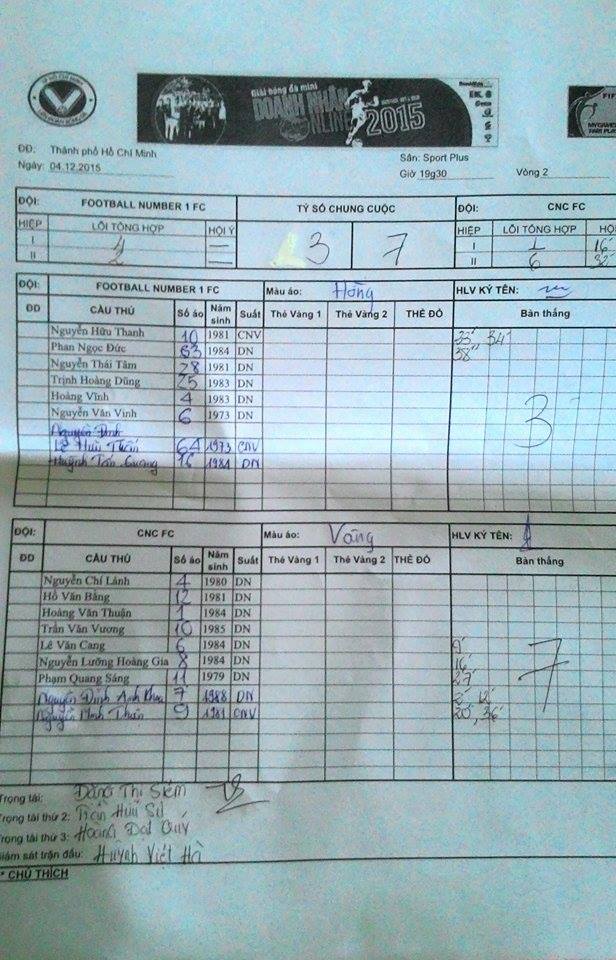 Giải bóng đá mini
DOANH NHÂN
ONLINE 2015
ĐĐ: Thành phố Hồ Chí Minh
Ngày: 04.12.2015
Sân: Sport Plus
Giờ 19g30 Vòng 2
ĐỘI: FOOTBALL NUMBER 1 FC TỶ SỐ CHUNG CUỘC ĐỘI: CNC FC
HIỆP LỖI TỔNG HỢP HỘI Ý 3 7 HIỆP LỖI TỔNG HỢP HỘ
I 4 — I 1 16
II 2 — II 6 32
ĐỘI: FOOTBALL NUMBER 1 FC Màu áo: Hồng HLV KÝ TÊN:
ĐD CẦU THỦ Số áo Năm sinh Suất Thẻ Vàng 1 Thẻ Vàng 2 THẺ ĐỎ Bàn thắng
Nguyễn Hữu Thanh 10 1981 CNV 34'
Phan Ngọc Đức 63 1984 DN 38'
Nguyễn Thái Tâm 28 1981 DN
Trịnh Hoàng Dũng 25 1983 DN
Hoàng Vĩnh 4 1983 DN
Nguyễn Văn Vinh 6 1973 DN
3
Lê Hữu 64 1973 CNV
Huỳnh Tấn 16 1984 DN
ĐỘI: CNC FC Màu áo: Vàng HLV KÝ TÊN:
ĐD CẦU THỦ Số áo Năm sinh Suất Thẻ Vàng 1 Thẻ Vàng 2 THẺ ĐỎ Bàn thắng
Nguyễn Chí Lành 4 1980 DN
Hồ Văn Bằng 12 1981 DN
Hoàng Văn Thuận 1 1984 DN
Trần Văn Vương 10 1985 DN
Lê Văn Cang 6 1984 DN 9'
Nguyễn Lưỡng Hoàng Gia 8 1984 DN 16'
Phạm Quang Sáng 11 1979 DN 27'
7
Nguyễn Đình Anh Khoa 7 1988 DN 2' 12'
Nguyễn Minh 9 1981 CNV 20', 36'
Trọng tài: Đặng Thị
Trọng tài thứ 2: Trần Hữu
Trọng tài thứ 3: Hoàng Đạt Quý
Giám sát trận đấu: Huỳnh Việt Hà
* CHÚ THÍCH